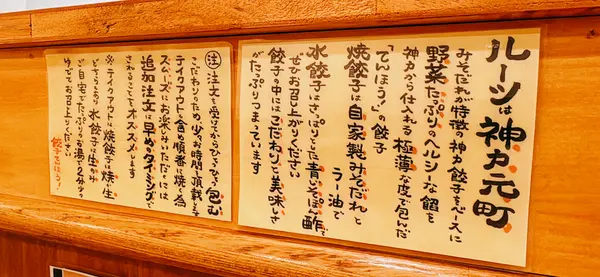 ルーツは神戸元町
みそだれが特徴の神戸餃子をベースに
野菜たっぷりのヘルシーな餡を
神戸から仕入れる極薄な皮で包んだ
「てんほう!」の餃子
焼餃子は自家製みそだれと
ラー油で
水餃子はさっぱりとした青じそぽん酢で
ぜひお召し上がりください
餃子の中にはこだわりと美味しさ
がたっぷりつまっています
注 注文を受けてからひとつひとつ包む
こだわりのため、少々お時間を頂戴します
テイクアウトも含め順番に焼く為
スムーズにお楽しみいただくには
追加注文は早めのタイミングで
されることをオススメします
※テイクアウトは焼餃子は焼か生
どちらかあり 水餃子は生のみ
ご自宅でたっぷりのお湯で2分少々
ゆでてお召し上がりください
餃子をほう!